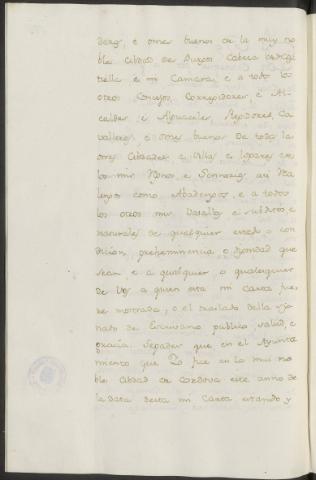 dores, e omes buenos de la muy no
ble Cibdad de Burgos Cabeza de Cas
tilla e mi Camara, e a todos los
otros Concejos, Corregidores, e Al-
caldes e Alguaciles, Regidores, Ca
valleros, e omes buenos de todas las
otras Cibdades, e Villas e lugares de
los mis Regnos, e Sennorios, asi Rea
lengos como Abadengos, e a todos
los otros mis Vasallos, e subditos, e
naturales de qualquier estado o con
dicion, preheminencia o dignidad que
sean e a qualquier, o qualesquier
de Vos a quien esta mi Carta fue
re mostrada, o el traslado della sig
nado de Escrivano publico, salud, e
gracia. Sepades que en el Ayunta
miento que Yo fice en la mui no
ble Cibdad de Cordova este anno de
la data desta mi Carta estando y